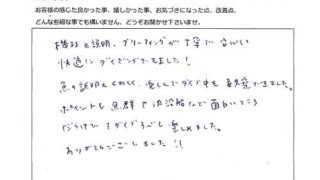 お客様の感じた良かった事、嬉しかった事、お気づきになった点、改善点、
どんな些細な事でも構いません、どうぞお聞かせ下さいませ。
機材の説明、ブリーフィングが丁寧で安心し
快適にダイビングできました!
魚の説明もくわしく、楽しんでダイブ中も発見できました。
ポイントも魚群や沈没船など面白いところ
だらけで3ダイブすべて楽しめました。
ありがとうございました!!